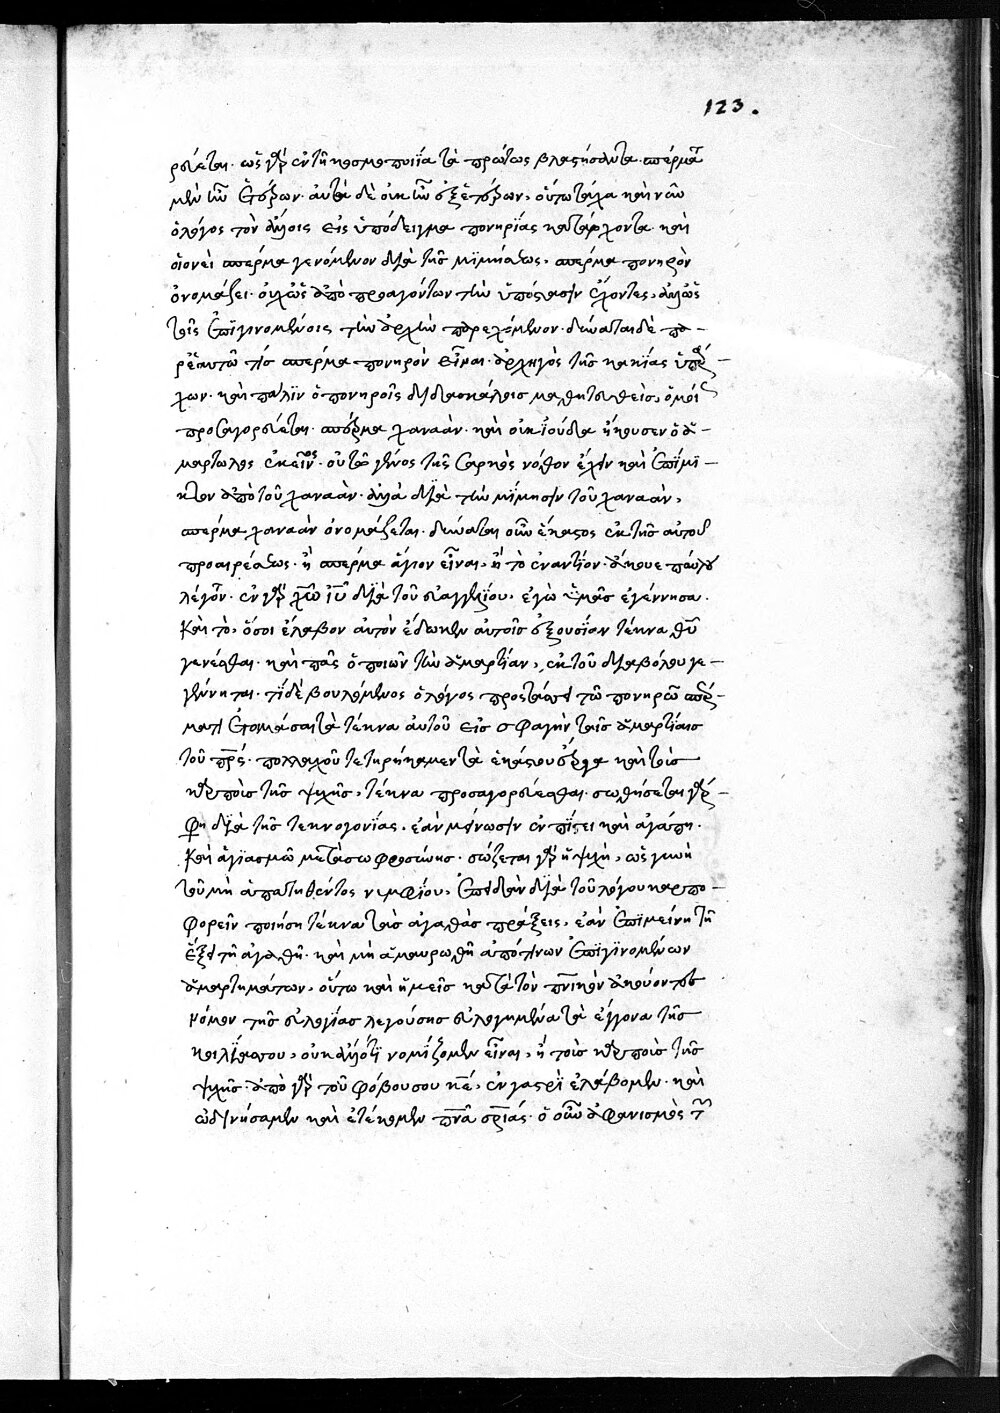 123.
ρεύεται. ὡς γὰρ ἐν τῆ κοσμοποιΐα τὰ πρώτως βλαστήσαντα. σπέρματα
μὲν ἦν ἑτέρων. αὐτὰ δὲ οὐκ ἦν ἐξ ἑτέρων, οὕτω τάχα καὶ νῦν
ὁ λόγος τὸν ἄλλοις εἰς ὑπόδειγμα πονηρίας κατάρχοντα. καὶ
οἱονεὶ σπέρμα γενόμενον διὰ τῆς μιμήσεως, σπέρμα πονηρὸν
ὀνομάζει. οὐχ ὡς ἀπὸ προαγόντων τὴν ὑπόστασιν ἔχοντες, ἀλλ' ὡς
τοῖς ἐπιγινομένοις τὴν ἀρχὴν παρεχόμενον. δύναται δὲ πα-
ρ' ἑαυτῶ τὶς σπέρμα πονηρὸν εἶναι. ἀρχηγὸς τῆς κακίας ὑπάρ-
χων. καὶ πάλιν ὁ πονηροῖς διδασκάλοις μαθητευθεὶς, ὁμοίως
προσαγορεύεται. σπέρμα χαναάν. καὶ οὐκ ἰούδα ἤκουσεν ὁ ἁ-
μαρτωλὸς ἐκεῖνος. οὐ τὸ γένος τῆς σαρκὸς νόθον ἔχειν καὶ ἐπίμι-
κτον ἀπὸ τοῦ χαναάν. ἀλλὰ διὰ τὴν μίμησιν τοῦ χαναάν,
σπέρμα χαναὰν ὀνομάζεται. δύναται οὖν ἕκαστος ἐκ τῆς αὐτοῦ
προαιρέσεως. ἢ σπέρμα ἅγιον εἶναι, ἢ τὸ ἐναντίον. ἄκουε παύλου
λέγοντος. ἐν γὰρ χῶ ἰῦ διὰ τοῦ εὐαγγελίου, ἐγὼ ὑμᾶς ἐγέννησα.
καὶ τὸ, ὅσοι ἔλαβον αὐτὸν ἔδωκεν αὐτοῖς ἐξουσίαν τέκνα θῦ
γενέσθαι. καὶ πᾶς ὁ ποιῶν τὴν ἁμαρτίαν, ἐκ τοῦ διαβόλου γε-
γέννηται. τί δὲ βουλόμενος ὁ λόγος προστάσσει τῶ πονηρῶ σπέρ-
ματι ἑτοιμάσαι τὰ τέκνα αὐτοῦ εἰς σφαγὴν ταῖς ἁμαρτίαις
τοῦ πρς. πολλαχοῦ τετηρήκαμεν τὰ ἑκάστου ἔργα καὶ τοὺς
καρποὺς τῆς ψυχῆς, τέκνα προσαγορεύεσθαι. σωθήσεται γάρ-
φη διὰ τῆς τεκνογονίας, ἐὰν μείνωσιν ἐν πίστει καὶ ἀγάπη.
καὶ ἁγιασμῶ μετὰ σωφροσύνης. σώζεται γὰρ ἡ ψυχὴ, ὡς γυνὴ
τοῦ μὴ ἀπατηθέντος νυμφίου, ἐπειδὰν διὰ τοῦ λόγου καρπο-
φορεῖν ποιήση τέκνα τὰς ἀγαθὰς πράξεις, ἐὰν ἐπιμείνη τῆ
ἕξει τῆ ἀγαθῆ. καὶ μὴ ἀμαυρωθῆ ἀπό τινων ἐπιγινομένων
ἁμαρτημάτων, οὕτω καὶ ἡμεῖς κατὰ τὸν πνικὸν ἀκούοντες
νόμον τῆς εὐλογίας λεγούσης εὐλογημένα τὰ ἔγγονα τῆς
κοιλίας σου, οὐκ ἄλλό τι νομίζομεν εἶναι, ἢ τοὺς καρποὺς τῆς
ψυχῆς. ἀπὸ γὰρ τοῦ φόβου σου κε, ἐν γαστρὶ ἐλάβομεν. καὶ
ὠδινήσαμεν καὶ ἐτέκομεν πνα σριάς. ὁ οὖν ἀφανισμὸς τῶν